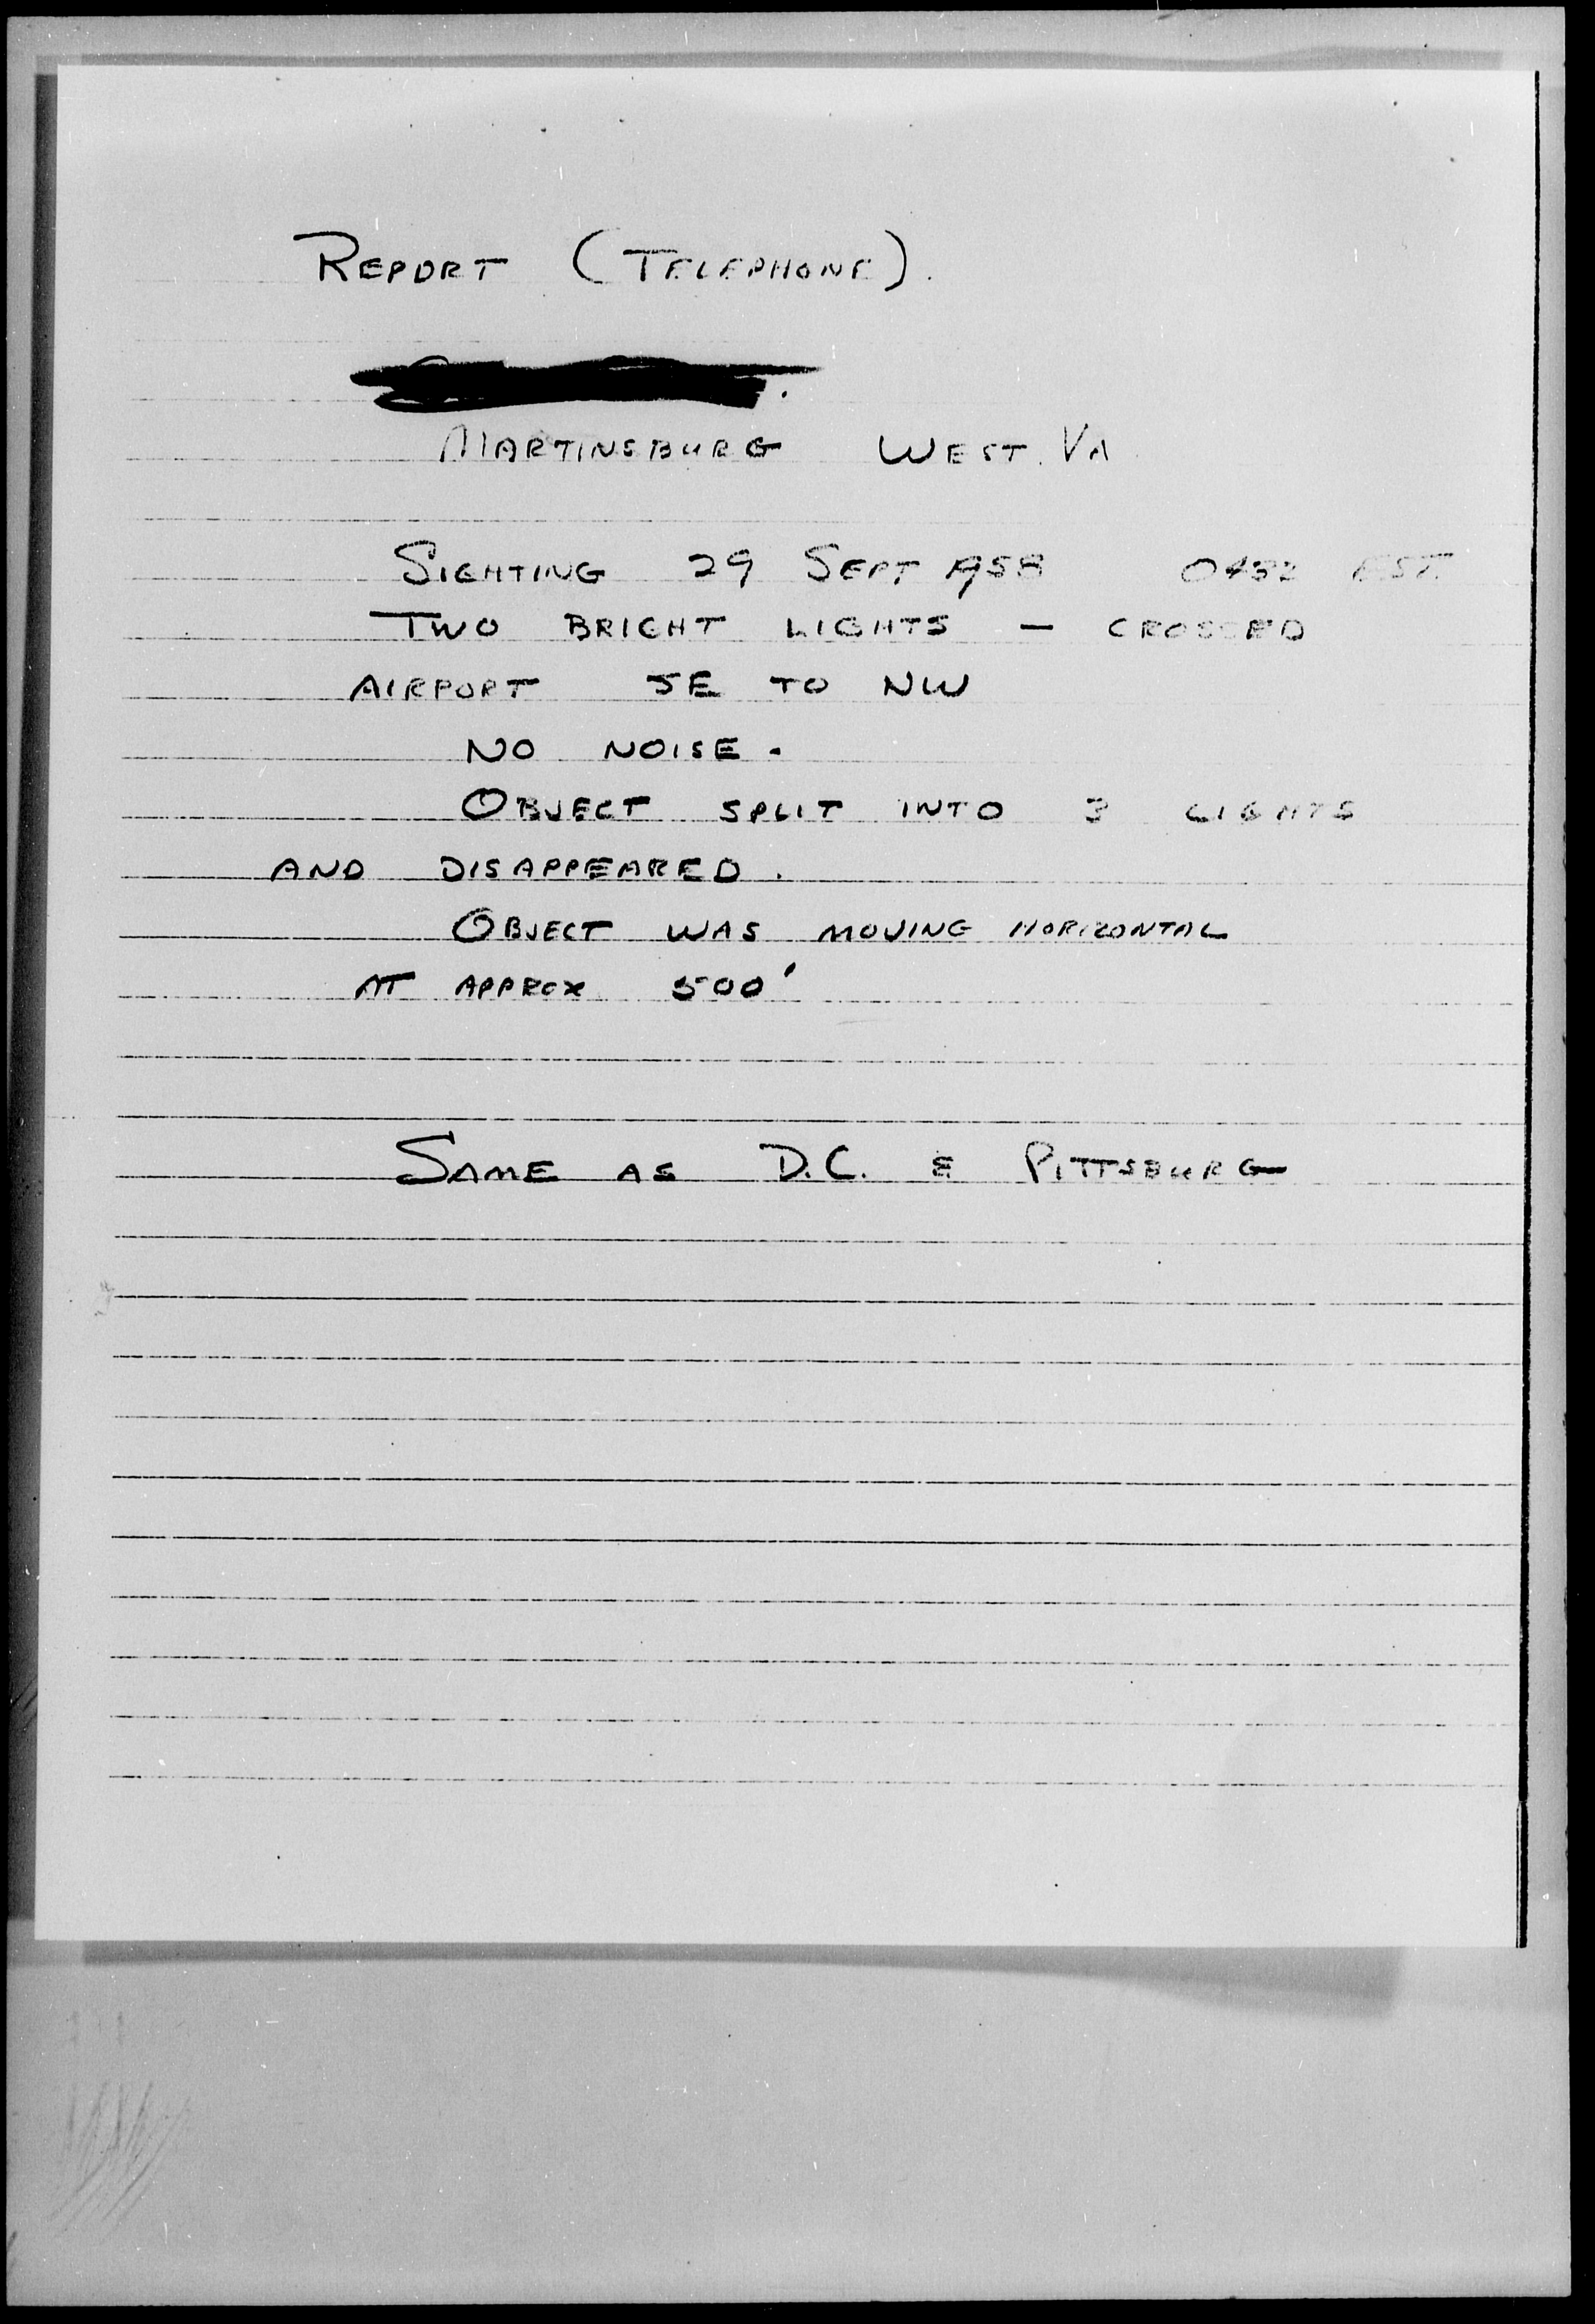 REPORT (TELEPHONE).
MARTINSBURG WEST. VA
SIGHTING 29 SEPT 1958 0432 EST.
TWO BRIGHT LIGHTS — CROSSED
AIRPORT SE TO NW
NO NOISE.
OBJECT SPLIT INTO 3 LIGHTS
AND DISAPPEARED.
OBJECT WAS MOVING HORIZONTAL
AT APPROX 500'
SAME AS D.C. & PITTSBURG